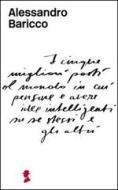 Alessandro
Baricco
I cinque
migliori posti
al mondo in cui
pensare e avere
idee intelligenti
su se stessi e
gli altri